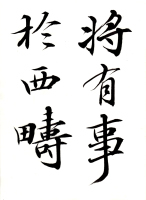 將有事
於西疇